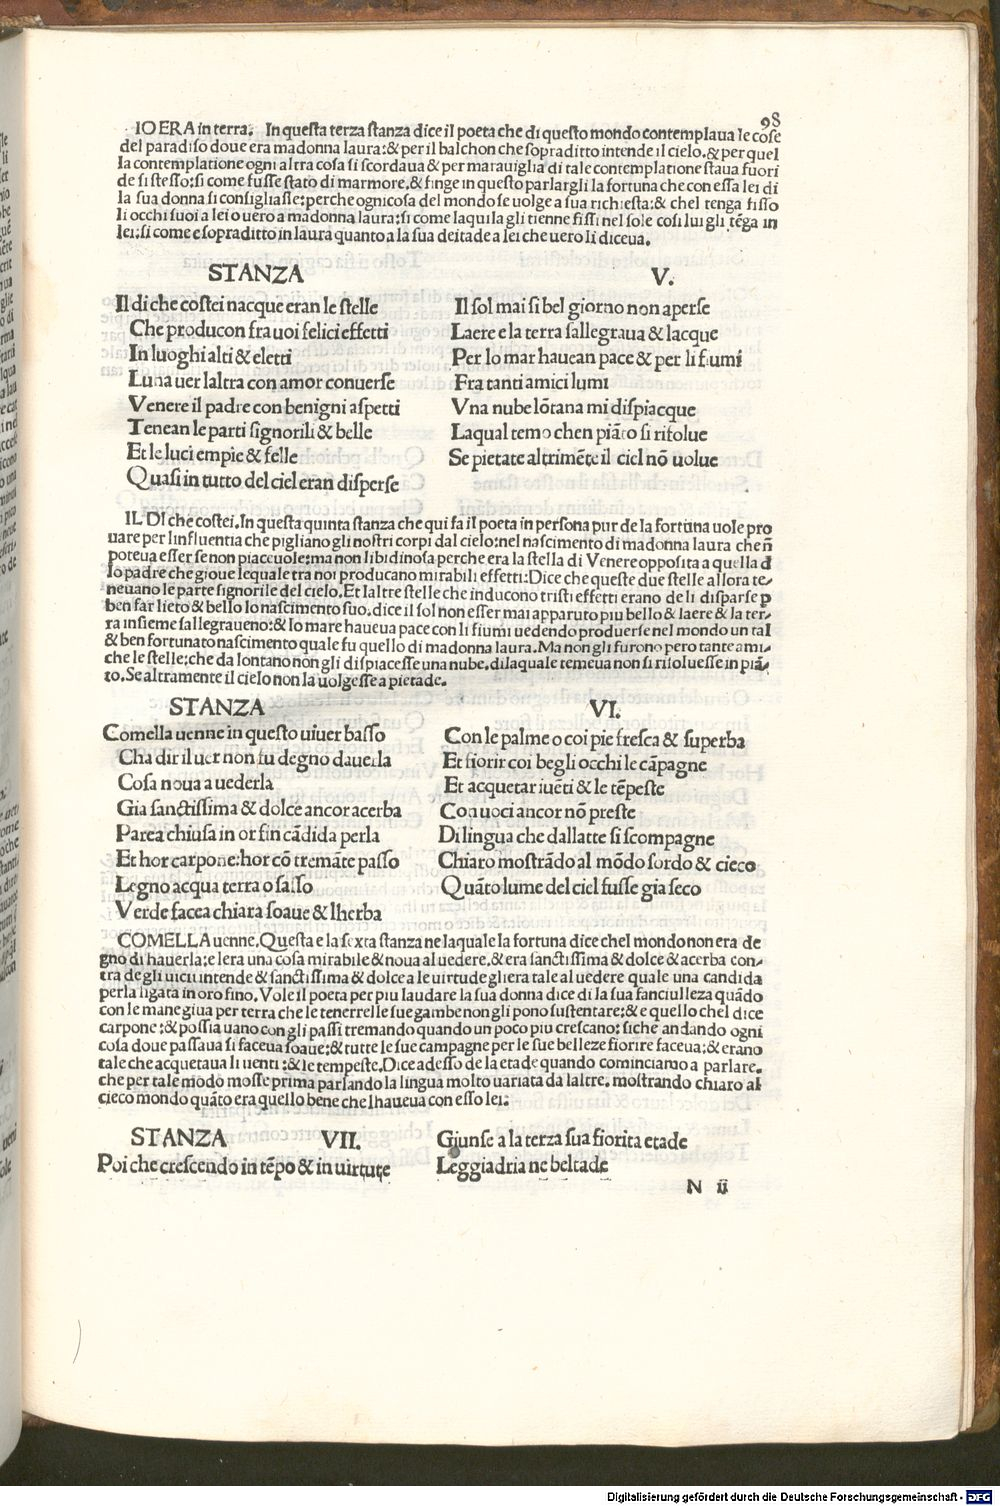 98
IO ERA in terra. In questa terza stanza dice il poeta che di questo mondo contemplaua le cose
del paradiso doue era madonna laura: & per il balchon che sopraditto intende il cielo. & per quel
la contemplatione ogni altra cosa si scordaua & per marauiglia di tale contemplatione staua fuori
de si stesso: si come fusse stato di marmore. & finge in questo parlargli la fortuna che con essa lei di
la sua donna si consigliasse: perche ognicosa del mondo se uolge a sua richiesta: & chel tenga fisso
li occhi suoi a lei o uero a madonna laura: si come laquila gli tienne fissi nel sole cosi lui gli tẽga in
lei: si come e sopraditto in laura quanto a la sua deitade a lei che uero li diceua.
STANZA V.
Il di che costei nacque eran le stelle
Che producon fra uoi felici effetti
In luoghi alti & eletti
Luna uer laltra con amor conuerse
Venere il padre con benigni aspetti
Tenean le parti signorili & belle
Et le luci empie & felle
Quasi in tutto del ciel eran disperse
Il sol mai si bel giorno non aperse
Laere e la terra sallegraua & lacque
Per lo mar hauean pace & per li fiumi
Fra tanti amici lumi
Vna nube lõtana mi dispiacque
Laqual temo chen piãto si risolue
Se pietate altrimẽte il ciel nõ uolue
IL DI che costei. In questa quinta stanza che qui fa il poeta in persona pur de la fortuna uole pro
uare per linfluentia che pigliano gli nostri corpi dal cielo: nel nascimento di madonna laura che ñ
poteua esser se non piaceuole: ma non libidinosa perche era la stella di Venere opposita a quella d
lo padre che gioue lequale tra noi producano mirabili effetti: Dice che queste due stelle allora te-
neuano le parte signorile del cielo. Et laltre stelle che inducono tristi effetti erano de li disparse p
ben far lieto & bello lo nascimento suo. dice il sol non esser mai apparuto piu bello & laere & la ter-
ra insieme sallegraueno: & lo mare haueua pace con li fiumi uedendo produerse nel mondo un tal
& ben fortunato nascimento quale fu quello di madonna laura. Ma non gli furono pero tante ami-
che le stelle: che da lontano non gli dispiacesse una nube. di laquale temeua non si risoluesse in piã-
to. Se altramente il cielo non la uolgesse a pietade.
STANZA VI.
Comella uenne in questo uiuer basso
Cha dir il uer non fu degno dauerla
Cosa noua a uederla
Gia sanctissima & dolce ancor acerba
Parea chiusa in or fin cãdida perla
Et hor carpone: hor cõ tremãte passo
Legno acqua terra o sasso
Verde facea chiara soaue & lherba
Con le palme o coi pie fresca & superba
Et fiorir coi begli occhi le cãpagne
Et acquetar iuẽti & le tẽpeste
Con uoci ancor nõ preste
Di lingua che dallatte si scompagne
Chiaro mostrãdo al mõdo sordo & cieco
Quãto lume del ciel fusse gia seco
COMELLA uenne. Questa e la sexta stanza ne laquale la fortuna dice chel mondo non era de
gno di hauerla: e lera una cosa mirabile & noua al uedere. & era sanctissima & dolce & acerba con-
tra de gli uicii intende & sanctissima & dolce a le uirtude gliera tale al uedere quale una candida
perla ligata in oro fino. Vole il poeta per piu laudare la sua donna dice di la sua fanciulleza quãdo
con le mane giua per terra che le tenerrelle sue gambe non gli pono sustentare: & e quello chel dice
carpone: & possia uano con gli passi tremando quando un poco piu crescano: siche andando ogni
cosa doue passaua si faceua soaue: & tutte le sue campagne per le sue belleze fiorire faceua: & erano
tale che acquetaua li uenti: & le tempeste. Dice adesso de la etade quando cominciamo a parlare.
che per tale modo mosse prima parlando la lingua molto uariata da laltre. mostrando chiaro al
cieco mondo quãto era quello bene che lhaueua con esso lei:
STANZA VII.
Poi che crescendo in tẽpo & in uirtute
Giunse a la terza sua fiorita etade
Leggiadria ne beltade
N ii
Digitalisierung gefördert durch die Deutsche Forschungsgemeinschaft - DFG